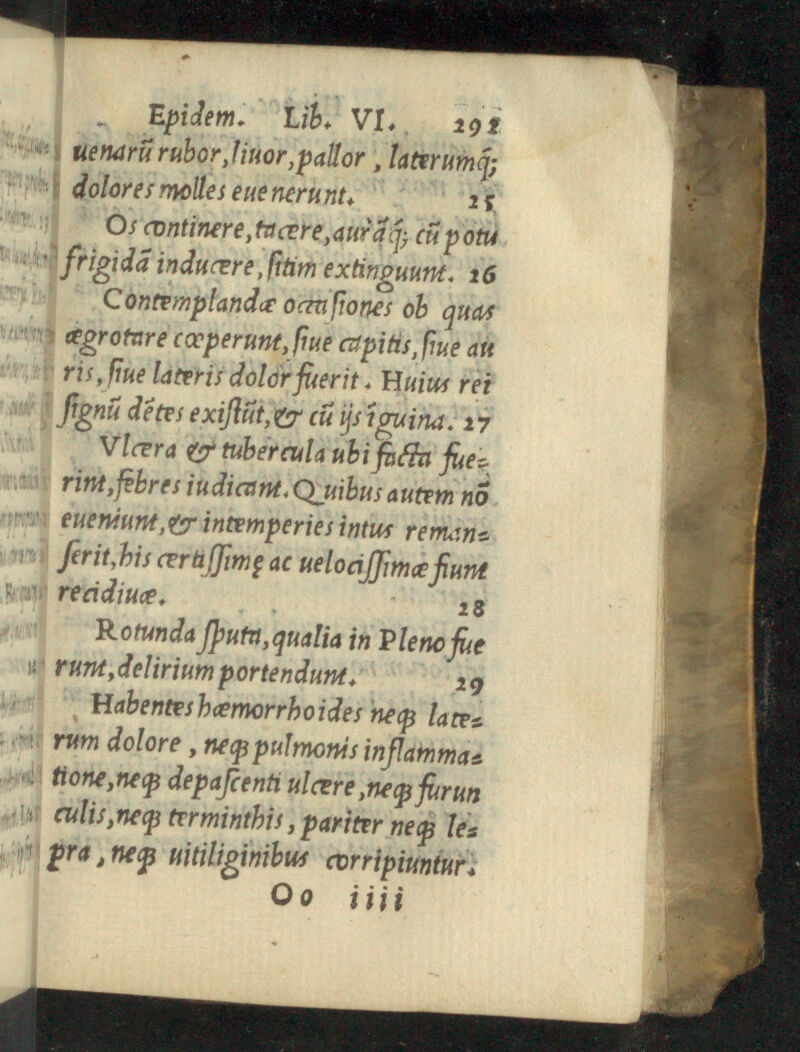 Epidem. Lib. VI. 292
uenarũ rubor, liuor, pallor, laterumq́;
dolores molles euenerunt. 25
Os continere, tacere, aurãq́; cũ potu
frigidã inducere, ſitim extinguunt. 26
Contemplandæ occaſiones ob quas
ægrotare cœperunt, ſiue capitis, ſiue au
ris, ſiue lateris dolor fuerit. Huius rei
ſignũ dẽtes exiſtũt, & cũ ijs ĩguina. 27
Vlcera & tubercula ubi facta fue⸗
rint, febres iudicant. Quibus autem nõ
eueniunt, & intemperies intus reman⸗
ſerit, his certiſſimę ac uelociſſimæ fiunt
recidiuæ. 28
Rotunda ſputa, qualia in Pleno fue
runt, delirium portendunt. 29
Habentes hæmorrhoides neqꝫ late⸗
rum dolore, neqꝫ pulmonis inflamma⸗
tione, neqꝫ depaſcenti ulcere, neqꝫ furun
culis, neqꝫ terminthis, pariter neqꝫ le⸗
pra, neqꝫ uitiliginibus corripiuntur.
Oo iiii